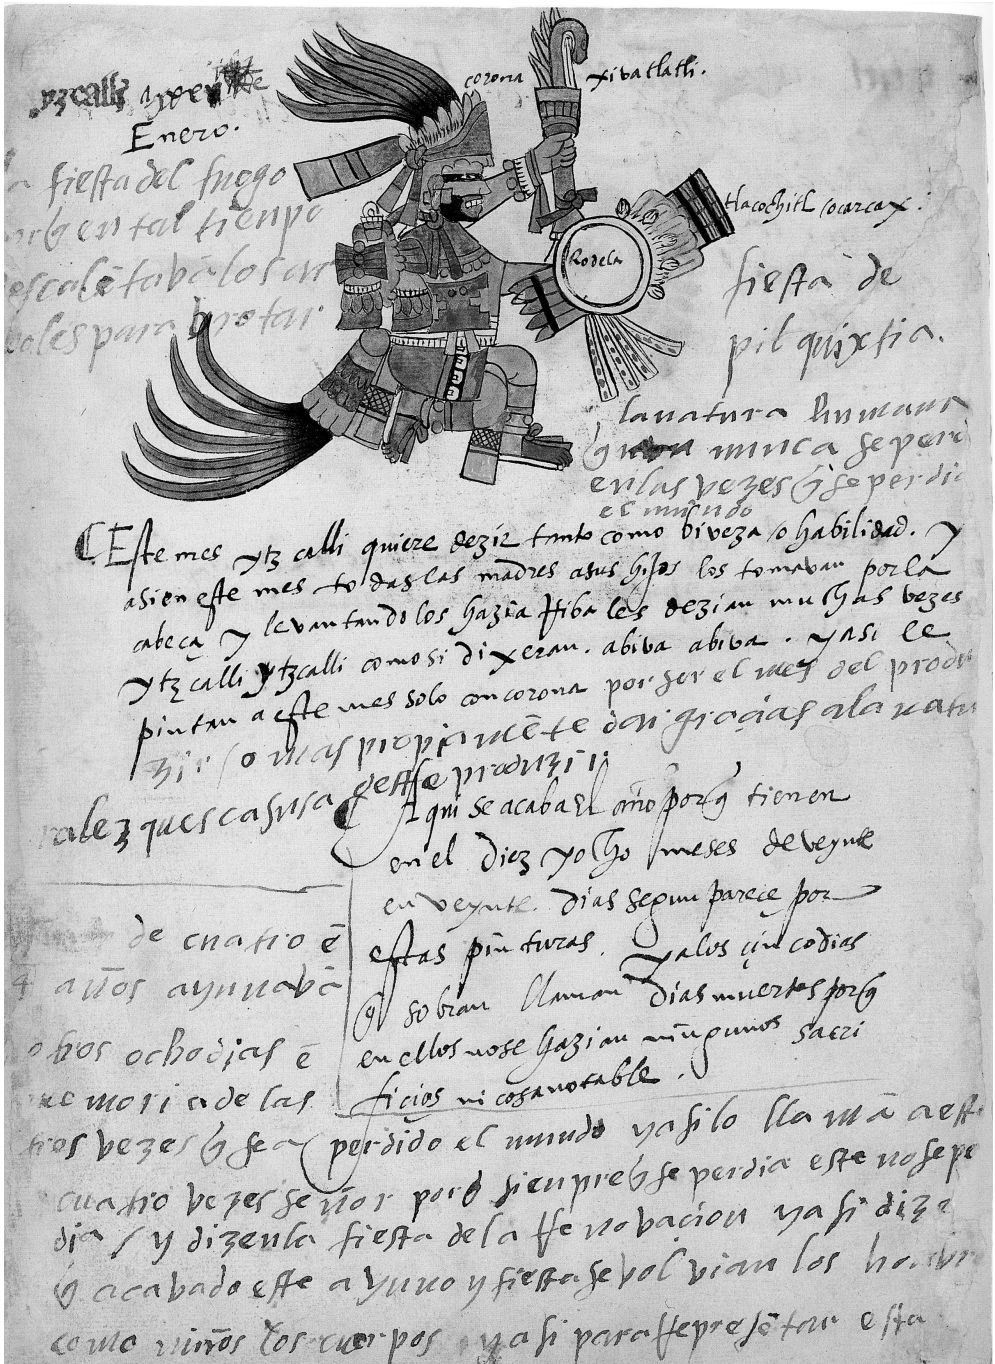 yzcalli a xx
Enero.
la fiesta del fuego
en tal tienpo
escalētavā los ar
boles para brotar
corona
xivatlatli.
Rodela
tlacochitl /ocarcax:
fiesta de
pil quixtia.
la natura humana
q̄ nunca se perd
en las vezes q̄ se perdio
el mundo
Este mes ytzcalli quiere dezir tanto como biveza /o habilidad. y
asi en este mes todas las madres a sus hijos los tomavan por la
cabeça y levantandolos hazia Riba les dezian muchas vezes
ytzcalli ytzcalli como si dixeran. abiva abiva. y asi le
pintan a este mes solo con corona por ser el mes del produ
zir /o mas propiamēte dar gracias a la natu
ralez ques causa deste produzir
Aqui se acaba El año porq̄ tienen
en el diez yocho meses de veynte
en veynte dias segun pareçe por
estas pinturas. y a los çincodias
q̄ sobran llaman dias muertos porq̄
en ellos no se hazian ningunos sacri
fiçios ni cosa notable.
de cuatro ē
4 años ayunavā
otros ocho dias ē
memoria de las
tres vezes q̄ se a perdido el mundo y asi lo llamā a este
cuatro vezes señor porq̄ sienpre q̄ se perdia este no se pe
dia / y dizen la fiesta de la Renovaçion y asi dize
q̄ acabado este ayuno y fiesta se volvian los honbr
como niños los cuerpos y asi para Representar esta